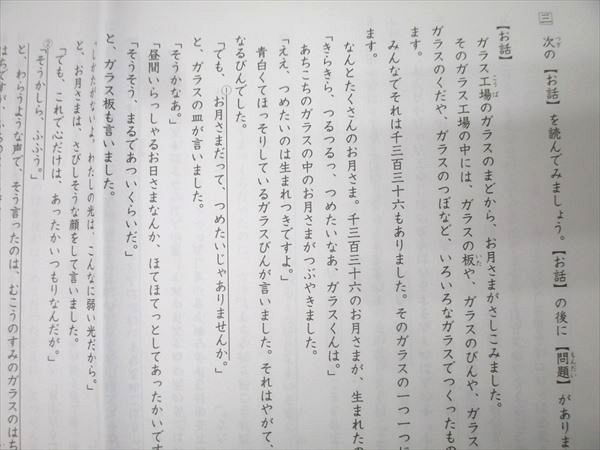 三 次の【お話】を読んでみましょう。【お話】の後に【問題】がありま
【お話】
ガラス工場のガラスのまどから、お月さまがさしこみました。
そのガラス工場の中には、ガラスの板や、ガラスのびんや、ガラス
ガラスのくだや、ガラスのつぼなど、いろいろなガラスでつくったもの
ます。
みんなでそれは千三百三十六もありました。そのガラスの一つ一つに
ます。
なんとたくさんのお月さま。千三百三十六のお月さまが、生まれたの
「きらきら、つるつるっ、つめたいなあ、ガラスくんは。」
あちこちのガラスの中のお月さまがつぶやきました。
「ええ、つめたいのは生まれつきですよ。」
青白くてほっそりしているガラスびんが言いました。それはやがて、
なるびんでした。
「でも、①お月さまだって、つめたいじゃありませんか。」
と、ガラスの皿が言いました。
「そうかなあ。」
「昼間いらっしゃるお日さまなんか、ほてほてっとしてあったかいです
「そうそう、まるであついくらいだ。」
と、ガラス板も言いました。
「しかたがないよ。わたしの光は、こんなに弱い光だから。」
と、お月さまは、さびしそうな顔をして言いました。
「でも、これで心だけは、あったかいつもりなんだが。」
②「そうかしら、ふふう。」
と、わらうような声で、そう言ったのは、むこうのすみのガラスのはち